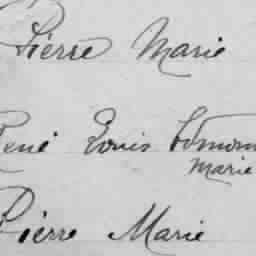 Pierre Marie
René Louis Edmon
Marie
Pierre Marie